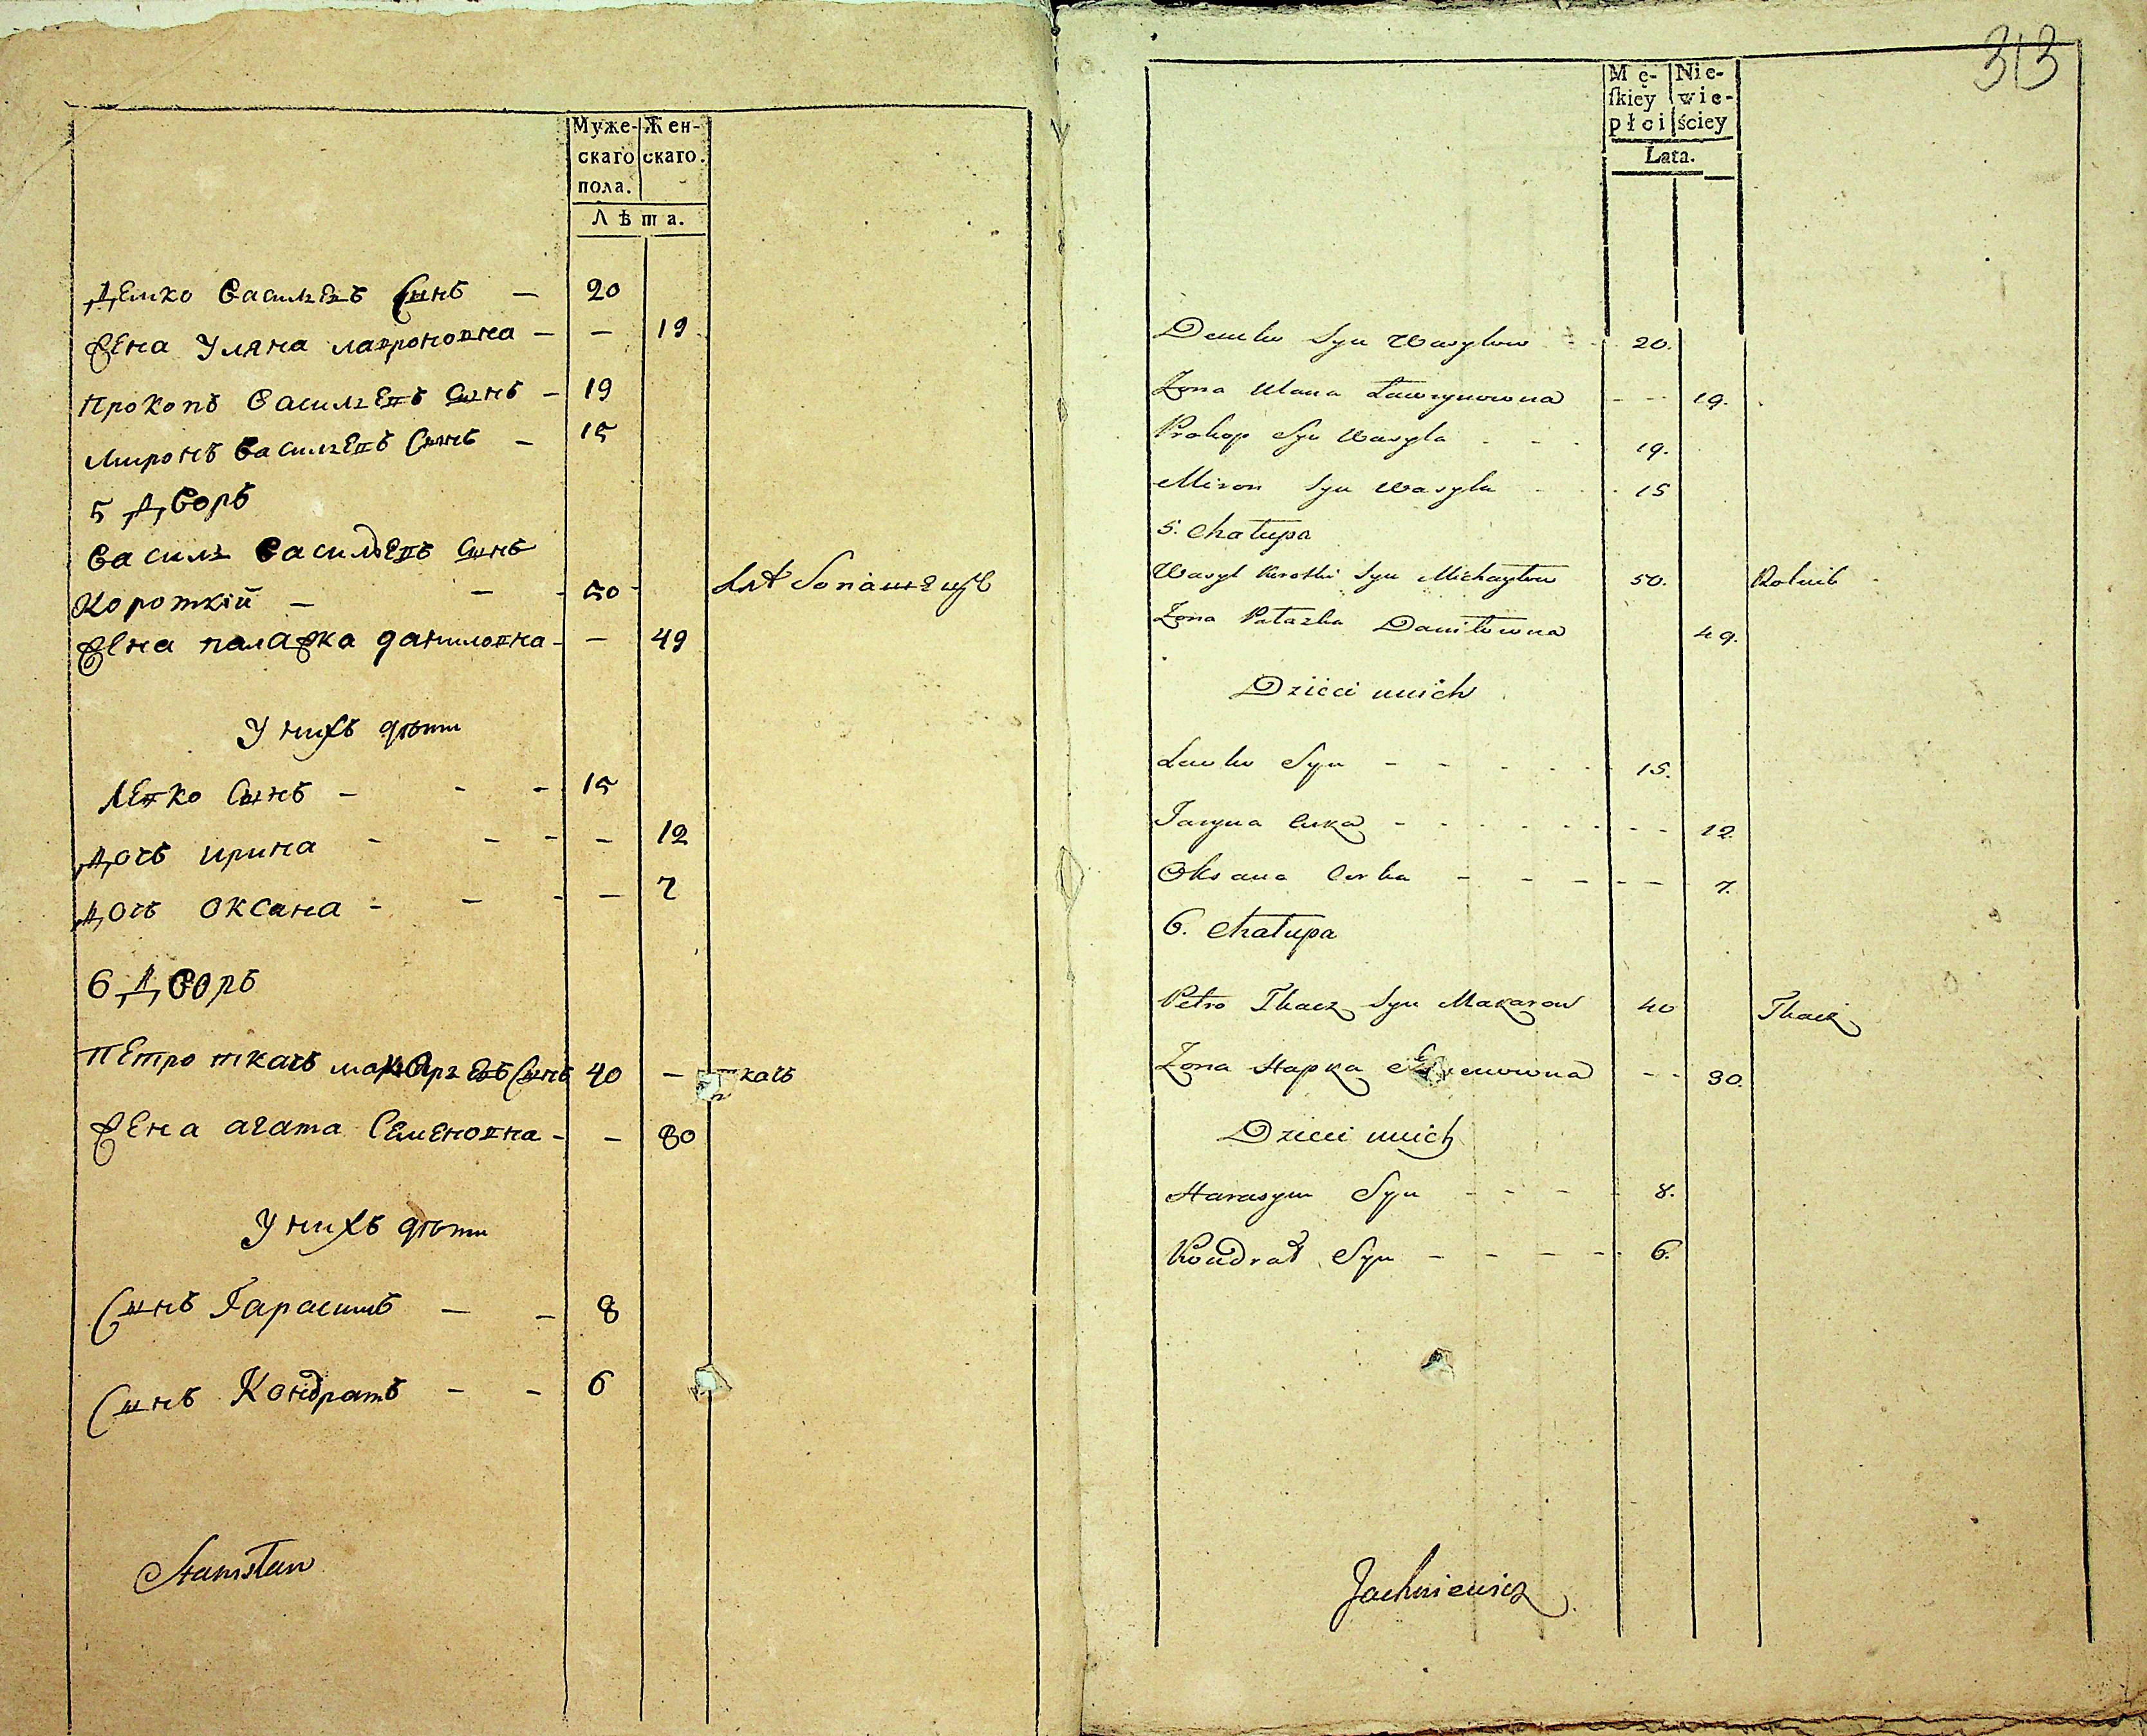 Муже- Жен-
скаго скаго.
пола.
Лѣта.
Демко Васильевъ Сынъ — 20
Жена Уляна лавроновна — — 19
Прокопъ Васильевъ Сынъ — 19
Миронъ Васильевъ Сынъ — 15
5 Дворъ
Василь Васильевъ Сынъ
Короткій — — - 50 -
Жена палажка даниловна - — 49
У нихъ дѣти
Левко Сынъ — - - 15
Дочь ирина - - - — 12
Дочь оксана - - - — 7
6 Дворъ
Петро ткачь макарьевъ Сынъ 40 — ткачь
Жена агата Семеновна - — 30
У нихъ дѣти
Сынъ Гарасимъ — - 8
Сынъ Кондратъ - - 6
Stanisław
313
Mę- Nie-
ſkiey wie-
płci ściey
Lata.
Demko Syn Wasylow - - 20.
Zona Ulana Ławrynowna - - - 19.
Prokop Syn Wasyla - - - 19.
Miron Syn Wasyla - - - 15
5. Chałupa
Wasyl Korotki Syn Michayłow 50. Rolnik
Zona Pałazka Daniłowna 49.
Dzieci unich
Lewko Syn - - - - - 15.
Jaryna Curka - - - - - - - - 12.
Oksana Corka - - - - - 7.
6. Chałupa
Petro Tkacz Syn Makarow 40 Tkacz
Zona Hapka - - 30.
Dzieci unich
Harasym Syn - - - - 8.
Kondrat Syn - - - - - 6.
Jachniewicz